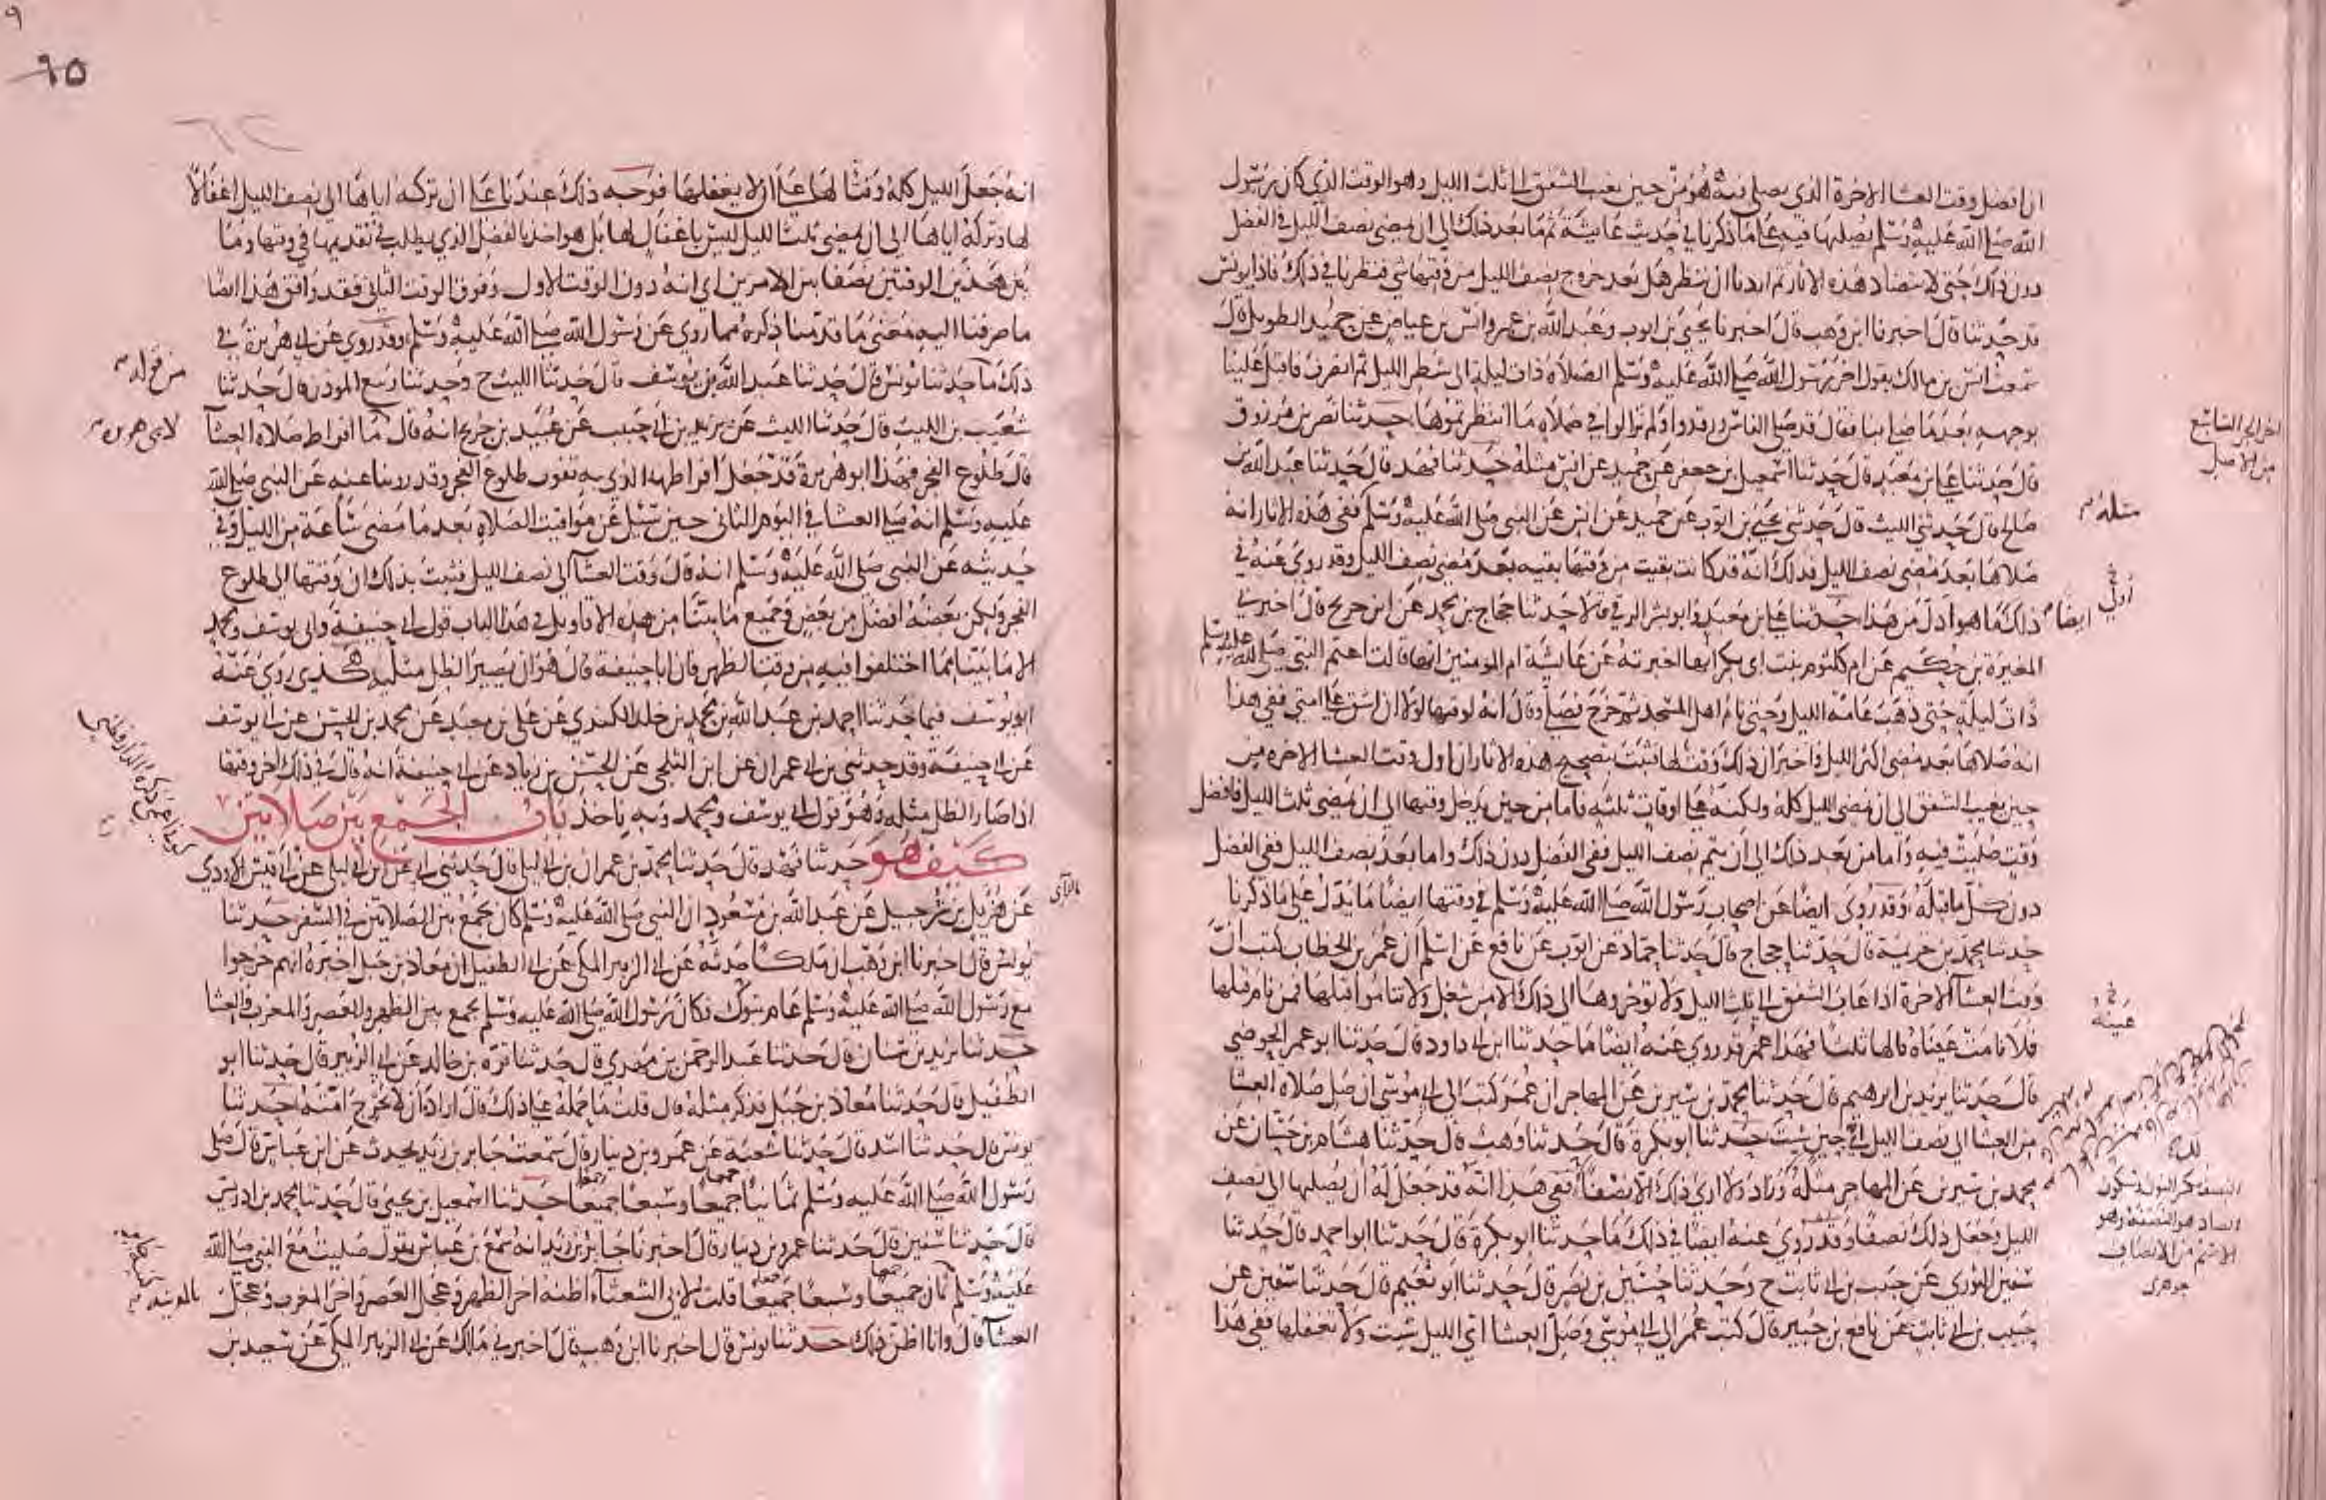 ان افضل وقت العشا الاخرة الذي يصلي فيه هو من حين يغيب الشفق الى ثلث الليل وهو الوقت الذي كان رسول
الله صلى الله عليه وسلم يصليها فيه على ما ذكرنا في حديث عايشة ثم ما بعد ذلك الى ان يمضي نصف الليل في الفضل
دون ذلك حتى لا يتضاد هذه الاثار ثم اردنا ان ننظر هل بعد خروج نصف الليل من وقتها شي فنظرنا في ذلك فاذا يونس
قد حدثنا قال اخبرنا ابن وهب قال اخبرنا يحيى بن ايوب وعبد الله بن عمر وانس بن عياض عن حميد الطويل قال
سمعت انس بن مالك يقول اخر رسول الله صلى الله عليه وسلم الصلاة ذات ليلة الى شطر الليل ثم انصرف فاقبل علينا
بوجهه بعد ما صلى بنا فقال قد صلى الناس ورقدوا ولم تزالوا في صلاة ما انتظرتموها حدثنا نصر بن مرزوق
قال حدثنا علي بن معبد قال حدثنا اسمعيل بن جعفر عن حميد عن انس مثله حدثنا فهد قال حدثنا عبد الله بن
صالح قال حدثني الليث قال حدثني يحيى بن ايوب عن حميد عن انس عن النبي صلى الله عليه وسلم ففي هذه الاثار انه
صلاها بعد مضي نصف الليل فذلك انه قد كانت بقيت من وقتها بقيه بعد مضي نصف الليل وقد روي عنه في
ذلك ما هو ادل من هذا حدثنا علي بن معبد وابو بشر الرقي قالا حدثنا حجاج بن محمد عن ابن جريج قال اخبرني
المغيرة بن حكيم عن ام كلثوم بنت ابي بكر انها اخبرته عن عايشة ام المومنين انها قالت اعتم النبي صلى الله عليه وسلم
ذات ليلة حتى ذهب عامة الليل وحتى نام اهل المسجد ثم خرج فصلى وقال انه لوقتها لولا ان اشق على امتي ففي هذا
انه صلاها بعد مضي اكثر الليل واخبر ان ذلك وقت لها فثبت بتصحيح هذه الاثار ان اول وقت العشا الاخره من
حين يغيب الشفق الى ان يمضي الليل كله ولكنه على اوقات ثلثه فاما من حين يدخل وقتها الى ان يمضي ثلث الليل فافضل
وقت صليت فيه واما من بعد ذلك الى ان يتم نصف الليل ففي الفضل دون ذلك واما بعد نصف الليل ففي الفضل
دون كل ما قبله وقد روي ايضا عن اصحاب رسول الله صلى الله عليه وسلم في وقتها ايضا ما يدل على ما ذكرنا
حدثنا محمد بن خزيمة قال حدثنا حجاج قال حدثنا حماد عن ايوب عن نافع عن اسلم ان عمر بن الخطاب كتب ان
وقت العشا الاخرة اذا غاب الشفق الى ثلث الليل ولا توخروها الى ذلك الا من شغل ولا تناموا قبلها فمن نام قبلها
فلا نامت عيناه قالها ثلثا فهذا عمر قد روي عنه ايضا ما حدثنا ابن ابي داود قال حدثنا ابو عمر الحوضي
قال حدثنا يزيد بن ابرهيم قال حدثنا محمد بن سيرين عن المهاجر ان عمر كتب الى ابي موسى ان صل صلاة العشا
من العشا الى نصف الليل اي حين شيت حدثنا ابو بكرة قال حدثنا وهب قال حدثنا هشام بن حسان عن
محمد بن سيرين عن المهاجر مثله وزاد ولا ارى ذلك الا نصفا ففي هذا انه قد جعل له ان يصليها الى نصف
الليل وجعل ذلك نصفا وقد روي عنه ايضا في ذلك ما حدثنا ابو بكرة قال حدثنا ابو احمد قال حدثنا
سفين الثوري عن حبيب بن ابي ثابت ح وحدثنا حسين بن نصر قال حدثنا ابو نعيم قال حدثنا سفين عن
حبيب بن ابي ثابت عن نافع بن جبير قال كتب عمر الى ابي موسى وصل العشا اي الليل شيت ولا تغفلها ففي هذا
اخر الجز السابع
من الاصل
مثله
ايضا
عينه
النصف بكسر النون وسكون
الصاد هو النصفة وهو
الاسم من الانصاف
جوهري
انه جعل الليل كله وقتا لها على ان لا يغفلها فوجه ذلك عندنا على ان تركه اياها الى نصف الليل اغفالا
لها وتركه اياها الى ان يمضي ثلث الليل ليس باغفال لها بل هو اخذ بالفضل الذي يطلب في تقديمها في وقتها وما
بين هذين الوقتين نصفا بين الامرين اي انه دون الوقت الاول وفوق الوقت الثاني فقد وافق هذا ايضا
ما صرفنا اليه معنى ما قدمنا ذكره مما روي عن رسول الله صلى الله عليه وسلم وقد روي عن ابي هريرة في
ذلك ما حدثنا يونس قال حدثنا عبد الله بن يوسف قال حدثنا الليث ح وحدثنا ربيع الموذن قال حدثنا
شعيب بن الليث قال حدثنا الليث عن يزيد بن ابي حبيب عن عبيد بن جريج انه قال ما افراط صلاة العشا
قال طلوع الفجر فهذا ابو هريرة قد جعل افراطها الذي به تفوت طلوع الفجر وقد روينا عنه عن النبي صلى الله
عليه وسلم انه صلى العشا في اليوم الثاني حين سئل عن مواقيت الصلاة بعد ما مضى ساعة من الليل وفي
حديثه عن النبي صلى الله عليه وسلم انه قال وقت العشا الى نصف الليل فثبت بذلك ان وقتها الى طلوع
الفجر ولكن بعضه افضل من بعض وجميع ما بينا من هذه الاقاويل في هذا الباب قول ابي حنيفة وابي يوسف ومحمد
الا ما بينا مما اختلفوا فيه من وقت الظهر فان ابا حنيفة قال هو ان يصير الظل مثليه هكذى روي عنه
ابو يوسف فيما حدثنا احمد بن عبد الله بن محمد بن خلد الكندي عن علي بن معبد عن محمد بن الحسن عن ابي يوسف
عن ابي حنيفة وقد حدثني بن ابي عمران عن ابن الثلجي عن الحسن بن زياد عن ابي حنيفة انه قال في ذلك اخر وقتها
اذا صار الظل مثله وهو قول ابي يوسف ومحمد وبه ناخذ باب الجمع بين صلاتين
كيف هو حدثنا فهد قال حدثنا محمد بن عمران بن ابي ليلى قال حدثني ابي عن ابن ابي ليلى عن ابي قيس الاودي
عن هزيل بن شرحبيل عن عبد الله بن مسعود ان النبي صلى الله عليه وسلم كان يجمع بين الصلاتين في السفر حدثنا
يونس قال اخبرنا ابن وهب ان ملكا حدثه عن ابي الزبير المكي عن ابي الطفيل ان معاذ بن جبل اخبره انهم خرجوا
مع رسول الله صلى الله عليه وسلم عام تبوك فكان رسول الله صلى الله عليه وسلم يجمع بين الظهر والعصر والمغرب والعشا
حدثنا يزيد بن سنان قال حدثنا عبد الرحمن بن مهدي قال حدثنا قرة بن خالد عن ابي الزبير قال حدثنا ابو
الطفيل قال حدثنا معاذ بن جبل فذكر مثله قال قلت ما حمله على ذلك قال اراد ان لا يحرج امته حدثنا
يونس قال حدثنا اسد قال حدثنا شعبة عن عمرو بن دينار قال سمعت جابر بن زيد يحدث عن ابن عباس قال صلى
رسول الله صلى الله عليه وسلم ثمانيا جميعا وسبعا جميعا حدثنا اسمعيل بن يحيى قال حدثنا محمد بن ادريس
قال حدثنا سفين قال حدثنا عمرو بن دينار قال اخبرنا جابر بن زيد انه سمع بن عباس يقول صليت مع النبي صلى الله
عليه وسلم ثمان جميعا وسبعا جميعا قلت لابي الشعثاء اظنه اخر الظهر وعجل العصر واخر المغرب وعجل
العشا قال وانا اظن ذلك حدثنا يونس قال اخبرنا ابن وهب قال اخبرني مالك عن ابي الزبير المكي عن سعيد بن
لابي هريرة
بالمدينة
٩٥
٩